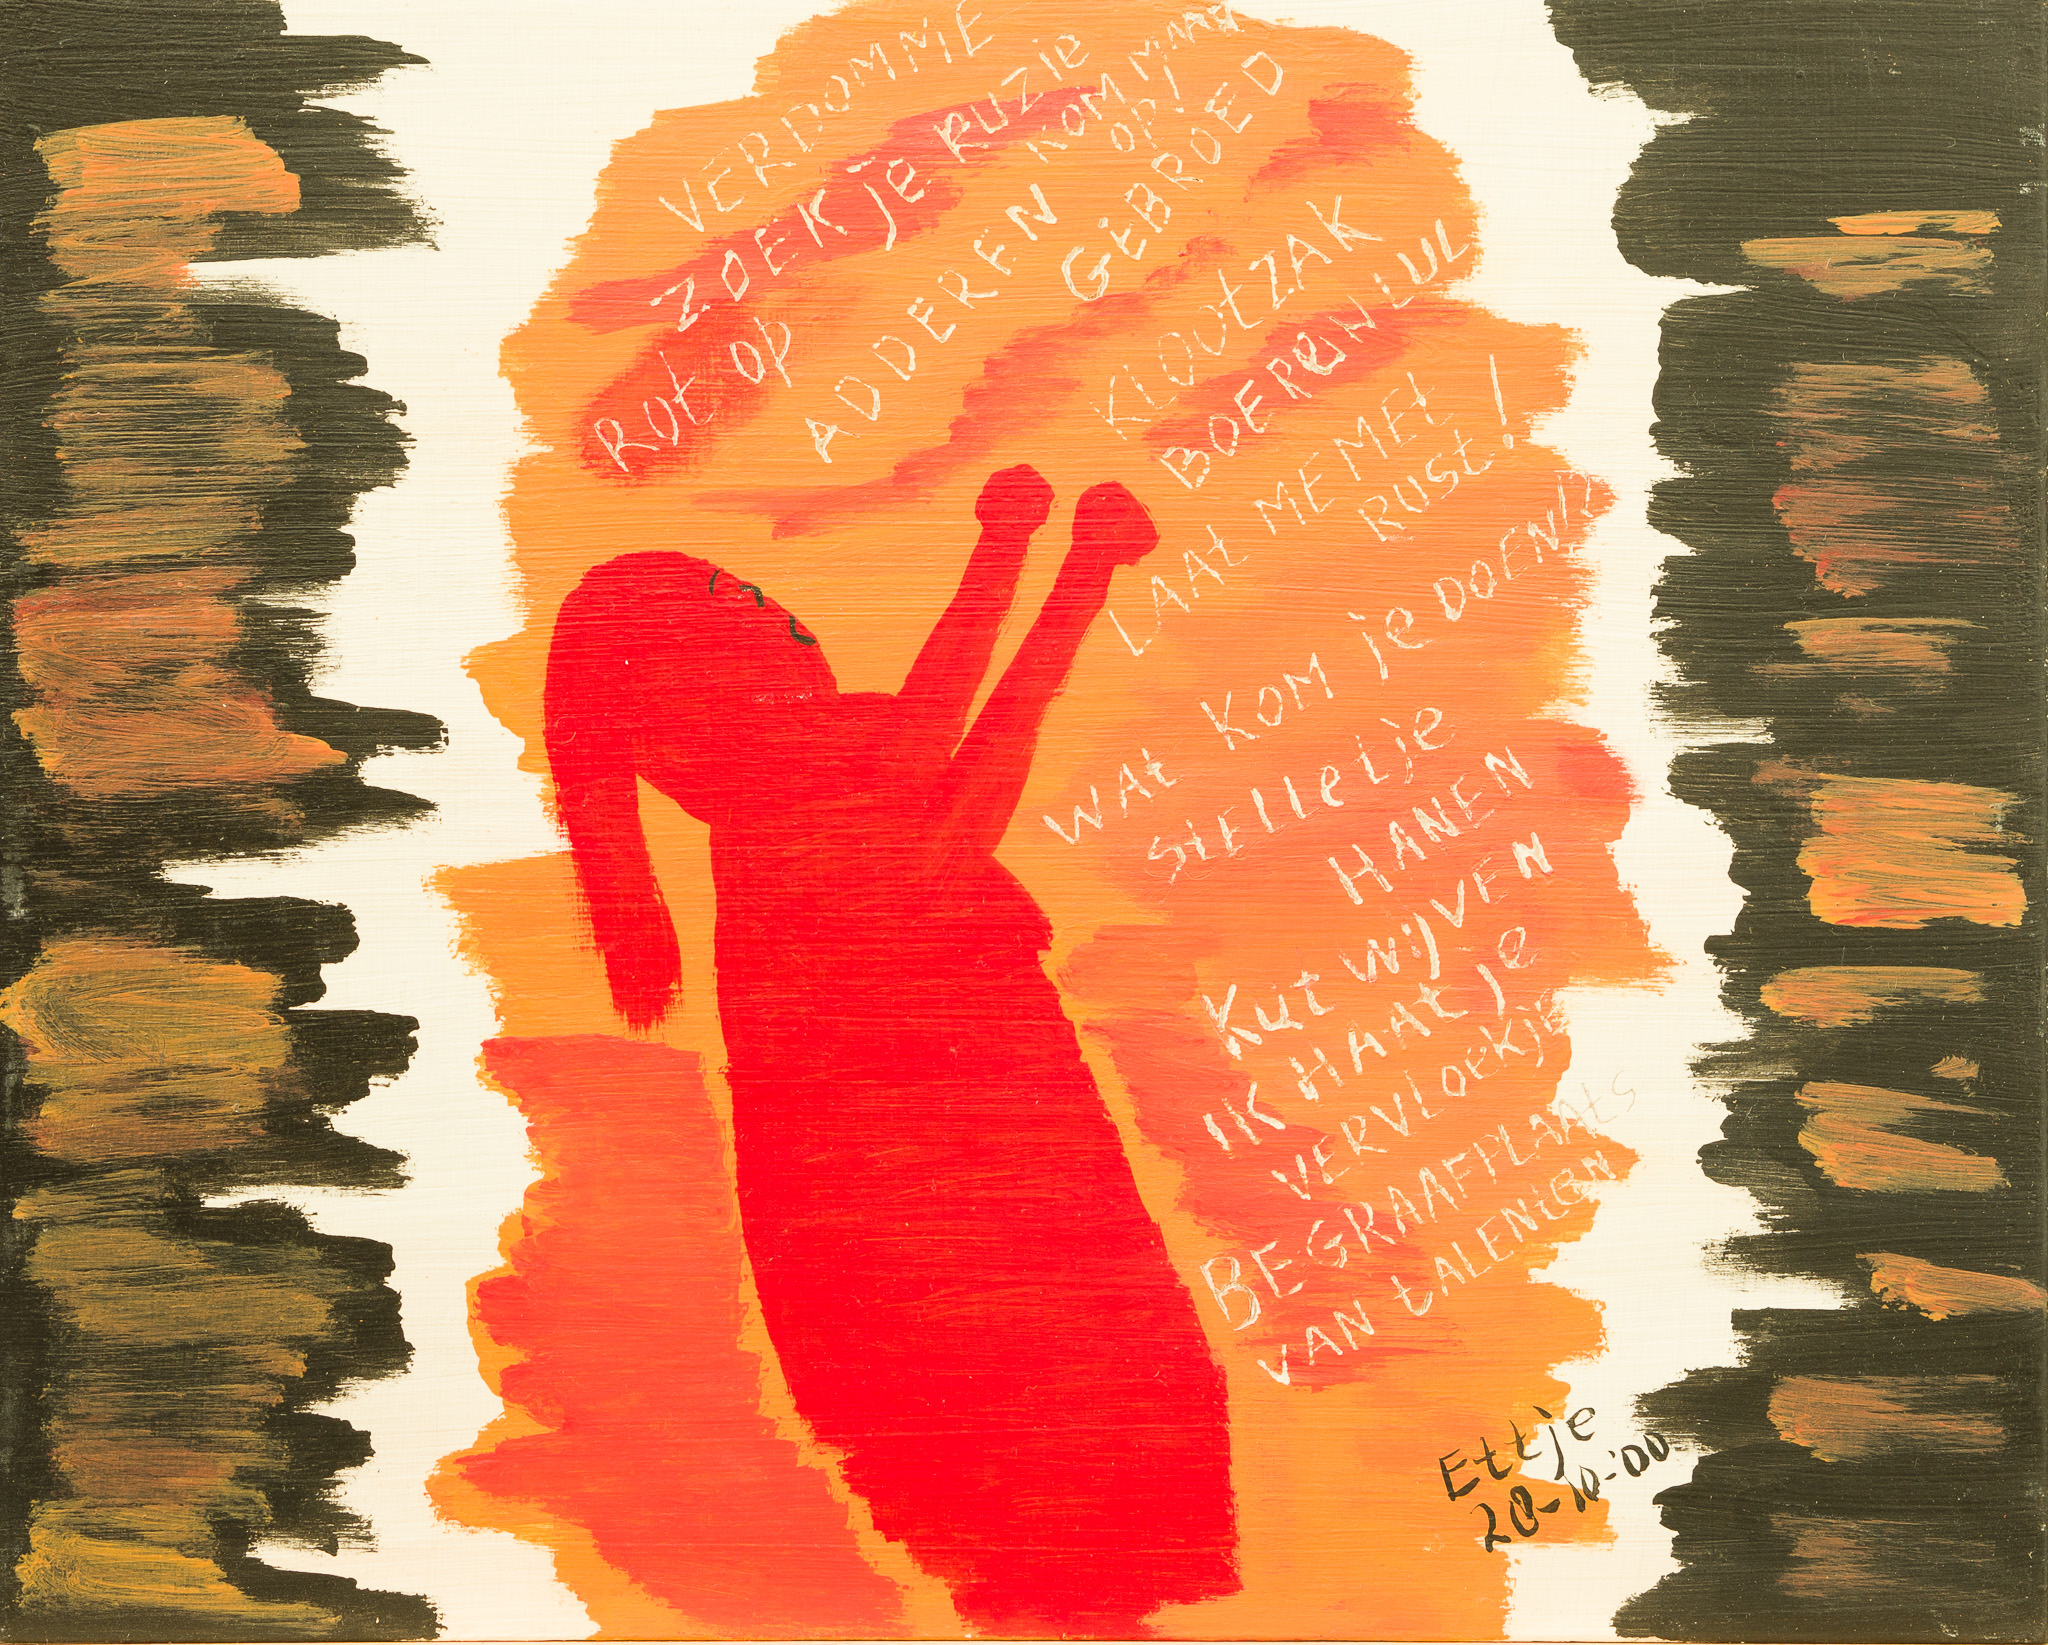 VERDOMME
ZOEK je RUZie
KOM MAAR
op!
Rot op
ADDEREN
GEBROED
KlOOtZAK
BOERENLUL
LAAt ME MEt
RUSt!
WAt KOM je DOEN!?
StElletje
HANEN
Kut WijVEN
IK HAAt je
VERVloEKjE
BEGRAAFPLAAts
VAN tALENtEN
Ettje
20-10-'00